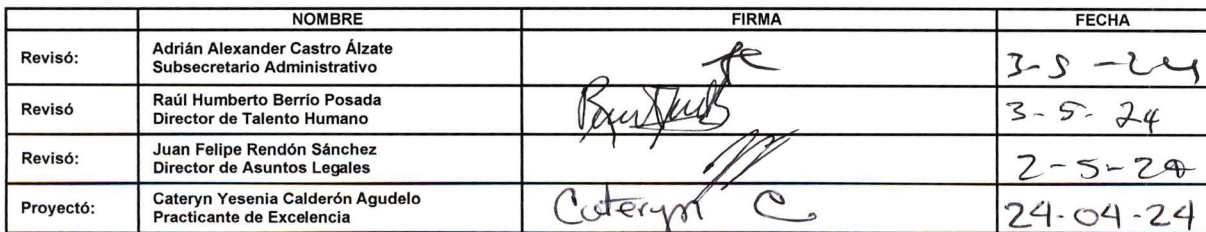 NOMBRE FIRMA FECHA
Revisó: Adrián Alexander Castro Álzate
Subsecretario Administrativo 3-5-24
Revisó Raúl Humberto Berrío Posada
Director de Talento Humano 3-5-24
Revisó: Juan Felipe Rendón Sánchez
Director de Asuntos Legales 2-5-24
Proyectó: Cateryn Yesenia Calderón Agudelo Cateryn C
Practicante de Excelencia 24-04-24